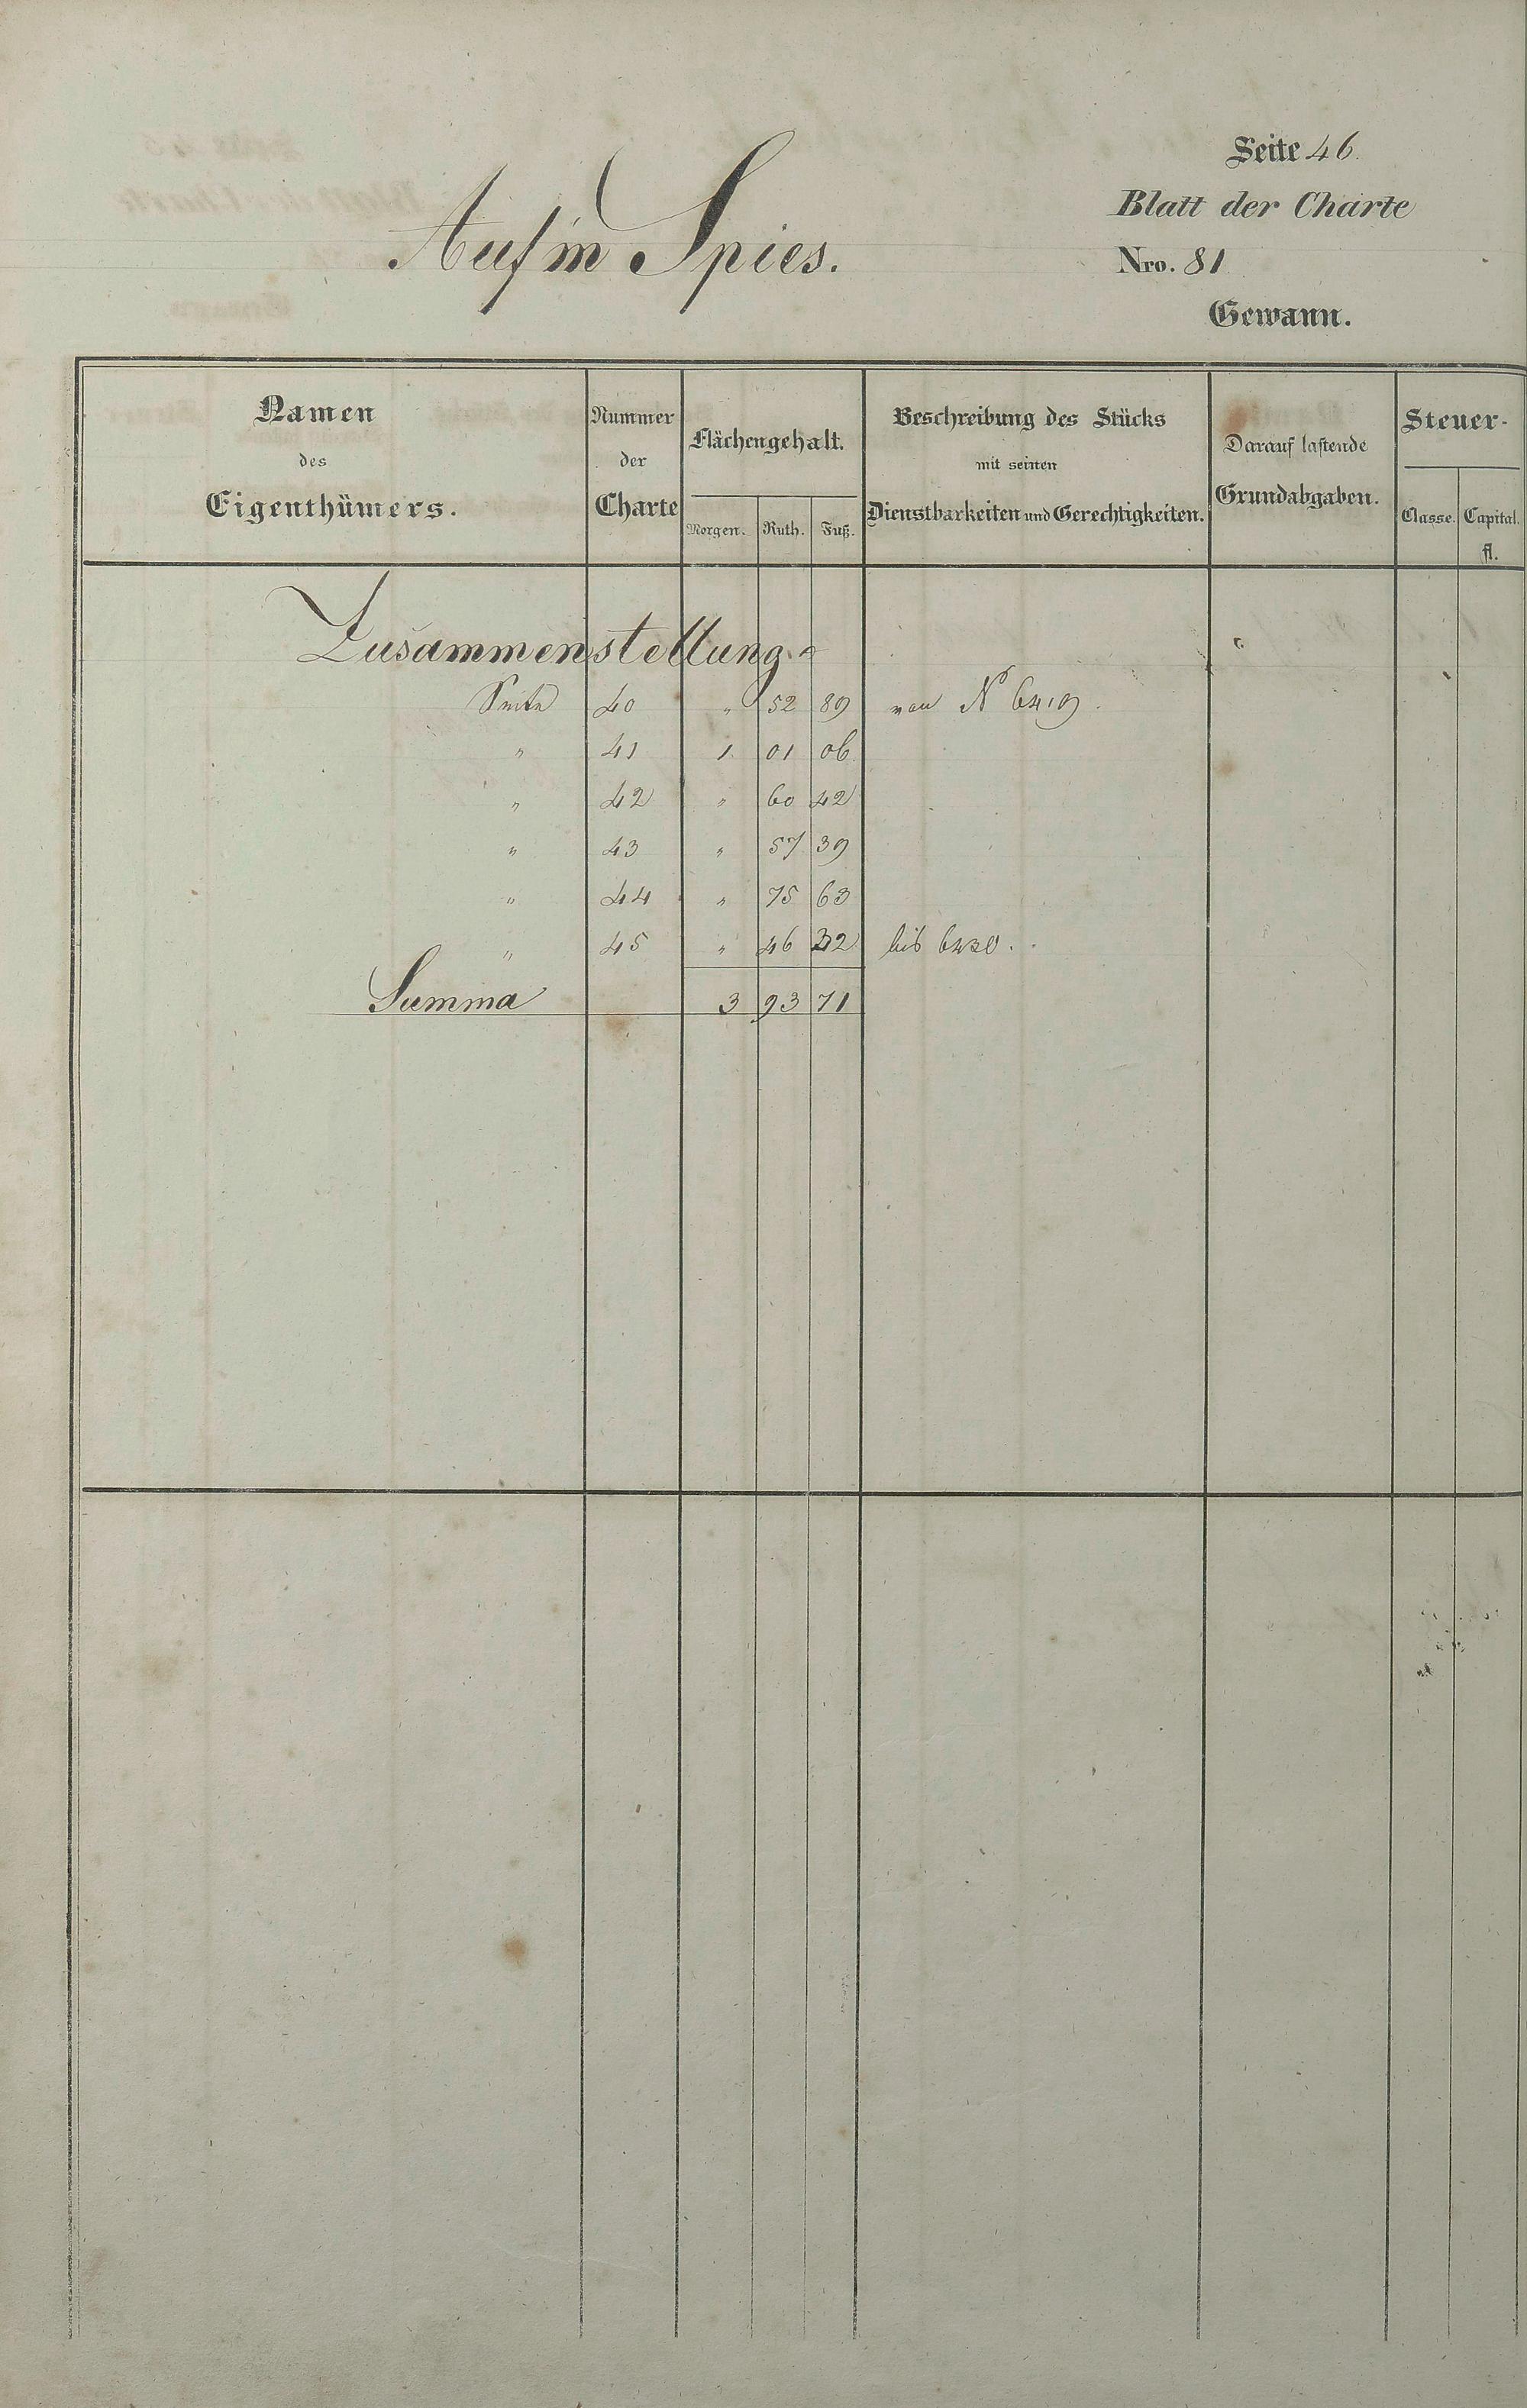 Seite 46.
Blatt der Charte
Auf'm Spies.
Nro. 81
Gewann.
Namen
des
Eigenthümers.
Nummer
der
Charte
Flächengehalt.
Morgen. Ruth. Fuß.
Beschreibung des Stücks
mit seinen
Dienstbarkeiten und Gerechtigkeiten.
Darauf lastende
Grundabgaben.
Steuer-
Classe. Capital.
fl.
Zusammenstellung.
Seite 40 " 52 89 von No 6419.
" 41 1. 01 06.
" 42 " 60 42
" 43 " 57 39
" 44 " 75 63
" 45 " 46 32 bis 6430.
Summa 3 93 71